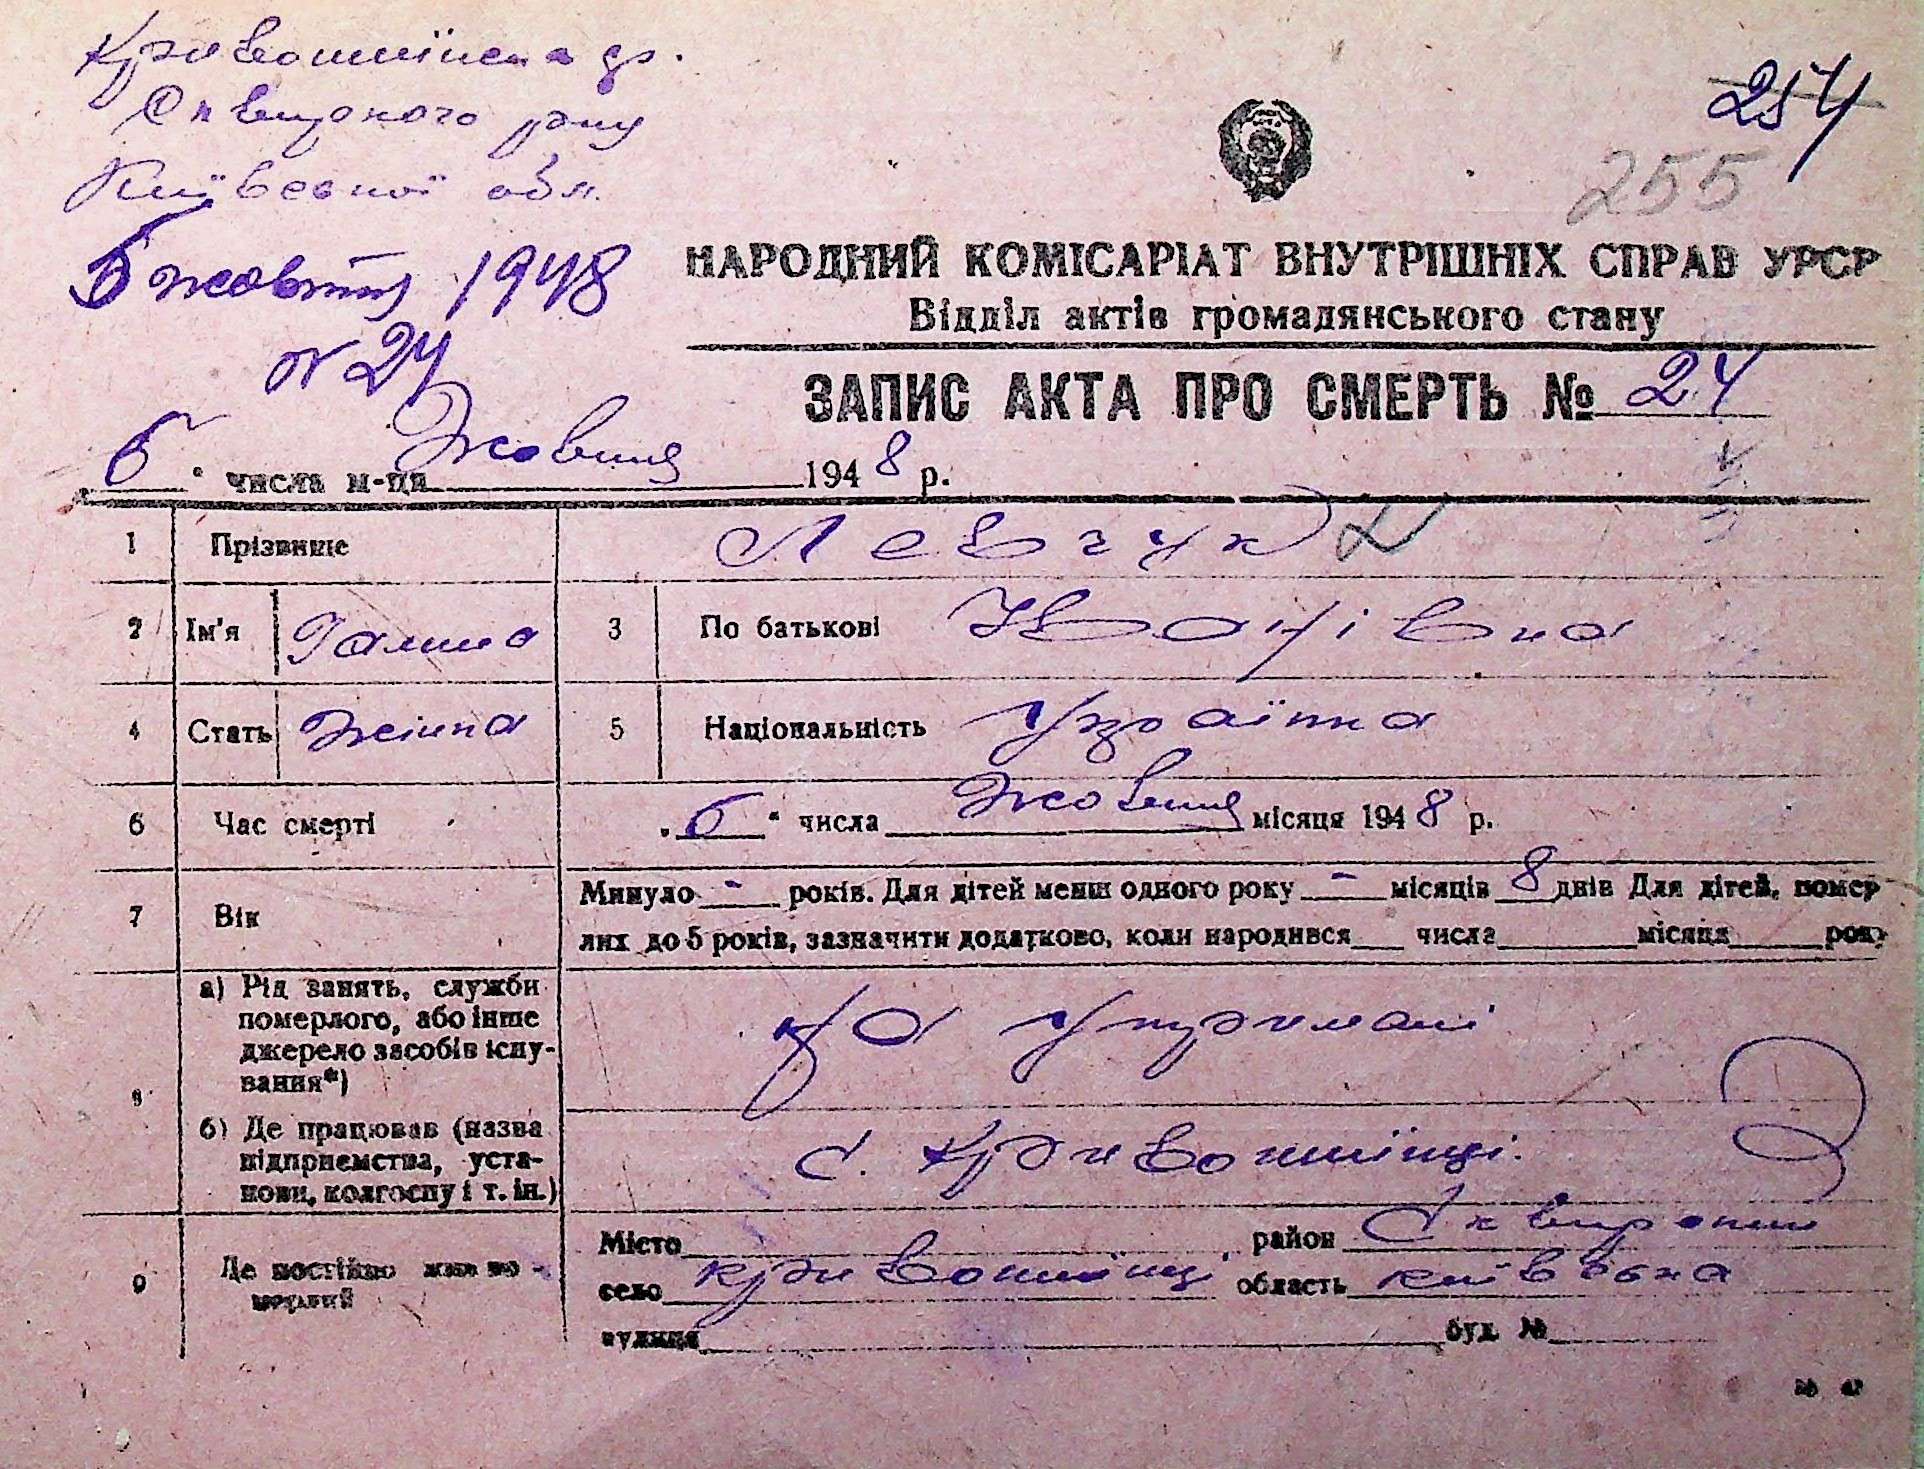 Кривошиїнська ср.
Сквирского р-ну
Київської обл.
254
255
6 жовтня 1948
№ 24
НАРОДНИЙ КОМІСАРІАТ ВНУТРІШНІХ СПРАВ УРСР
Відділ актів громадянського стану
ЗАПИС АКТА ПРО СМЕРТЬ № 24
„6“ числа м-ця Жовтня 1948 р.
1 Прізвище Левчук
2 Ім'я Галина 3 По батькові Іванівна
4 Стать жінка 5 Національність Українка
6 Час смерті „6“ числа Жовтня місяця 1948 р.
7 Вік Минуло - років. Для дітей менш одного року - місяців 8 днів Для дітей, помер
лих до 5 років, зазначити додатково, коли народився числа місяця року
8 а) Рід занять, служби
померлого, або інше
джерело засобів існу-
вання*)
на утриманні
б) Де працював (назва
підприємства, уста-
нови, колгоспу і т. ін.)
с. Кривошиїнці.
9 Де постійно жив по-
мерлий
Місто район Сквирський
село Кривошиїнці область Київська
вулиця буд. №